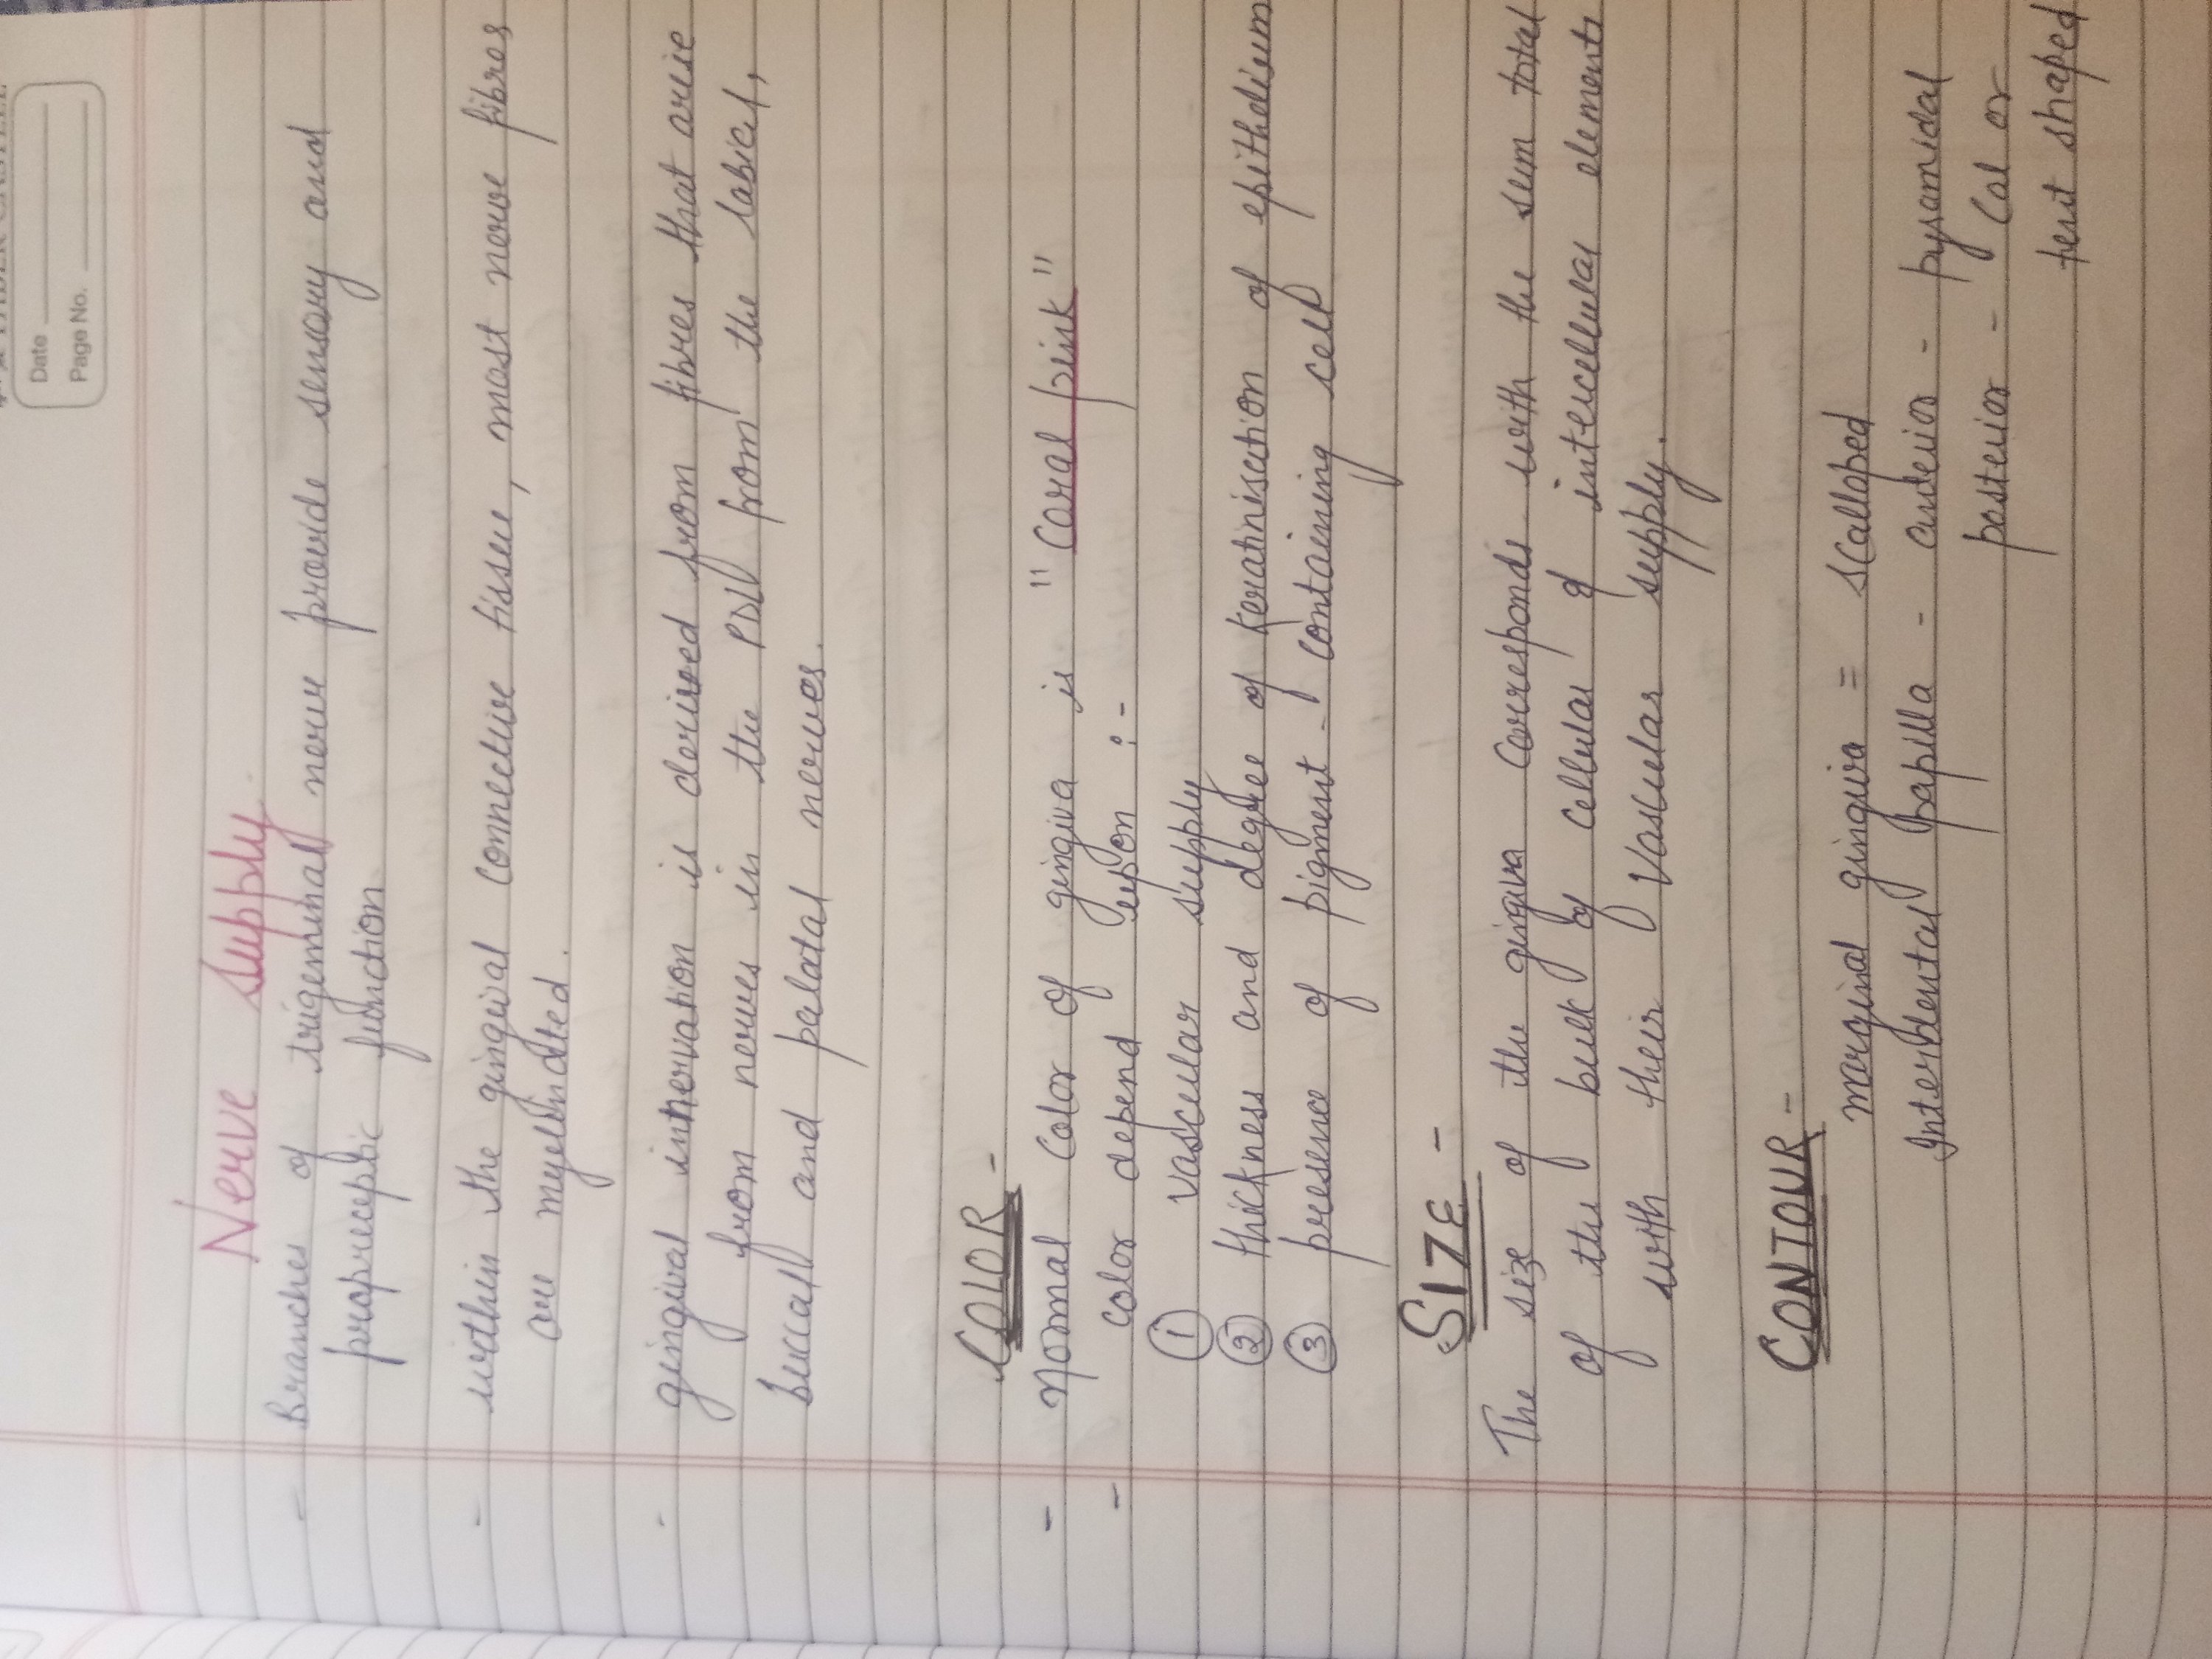 Date
Page No.
Nerve supply.
- Branches of trigeminal nerve provide sensory and
propreceptic function
- within the gingival connective tissue, most nerve fibres
are myelinated.
- gingival innervation is derived from fibres that arie
from nerves in the PDL from the labial,
buccal and palatal nerves.
COLOR -
- Normal color of gingiva is "Coral pink"
- color depend upon :-
① vascular supply
② thickness and degree of keratinisation of epithelium
③ presence of pigment - containing cell
SIZE -
The size of the gingiva corresponds with the sum total
of the bulk of cellular & intercellular elements
with their vascular supply.
CONTOUR -
marginal gingiva = scalloped
Interdental papilla - anterior - pyramidal
posterior - Col or
tent shaped